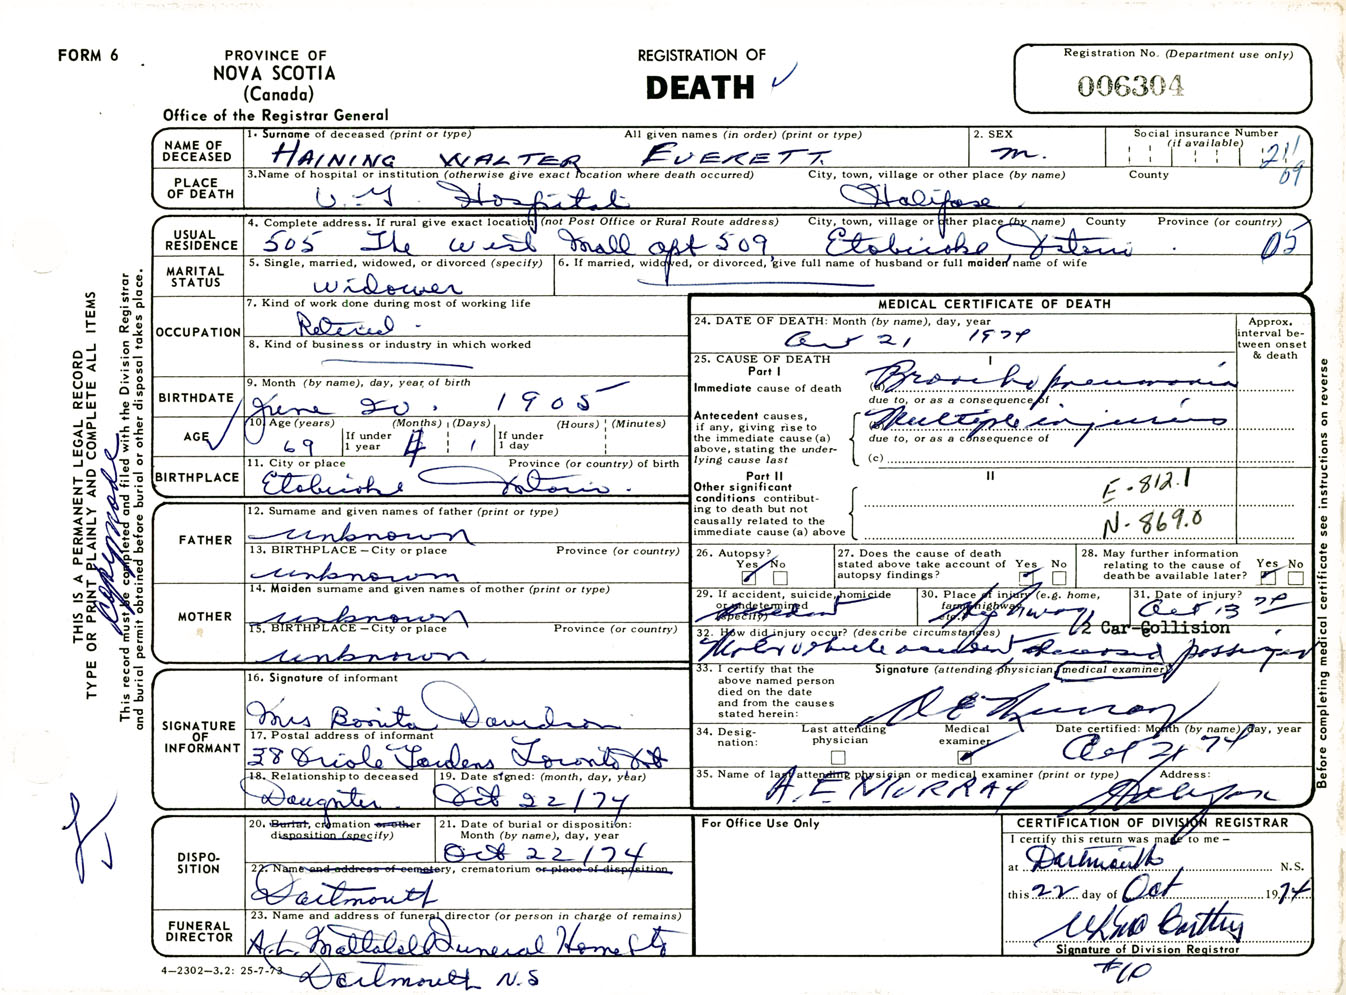 FORM 6
PROVINCE OF
NOVA SCOTIA
(Canada)
Office of the Registrar General
REGISTRATION OF
DEATH
Registration No. (Department use only)
006304
NAME OF DECEASED
1. Surname of deceased (print or type) All given names (in order) (print or type)
HAINING WALTER EVERETT
2. SEX
M.
Social insurance Number
(if available)
211
09
PLACE OF DEATH
3. Name of hospital or institution (otherwise give exact location where death occurred) City, town, village or other place (by name) County
V.G. Hospital Halifax
USUAL RESIDENCE
4. Complete address. If rural give exact location (not Post Office or Rural Route address) City, town, village or other place (by name) County Province (or country)
505 The West Mall apt 509, Etobicoke, Ontario. 05
MARITAL STATUS
5. Single, married, widowed, or divorced (specify)
Widower
6. If married, widowed, or divorced, give full name of husband or full maiden name of wife
OCCUPATION
7. Kind of work done during most of working life
Retired.
8. Kind of business or industry in which worked
BIRTHDATE
9. Month (by name), day, year of birth
June 20, 1905
AGE
10. Age (years) (Months) (Days) (Hours) (Minutes)
69 If under 1 year 4 1 If under 1 day
BIRTHPLACE
11. City or place Province (or country) of birth
Etobicoke Ontario.
FATHER
12. Surname and given names of father (print or type)
unknown
13. BIRTHPLACE – City or place Province (or country)
unknown
MOTHER
14. Maiden surname and given names of mother (print or type)
unknown
15. BIRTHPLACE – City or place Province (or country)
unknown.
SIGNATURE OF INFORMANT
16. Signature of informant
Mrs Bonita Davidson
17. Postal address of informant
38 Oriole Gardens Toronto Ont
18. Relationship to deceased
Daughter.
19. Date signed: (month, day, year)
Oct 22/74
DISPO-
SITION
20. Burial, cremation or other
disposition (specify)
21. Date of burial or disposition:
Month (by name), day, year
Oct 22/74
22. Name and address of cemetery, crematorium or place of disposition,
Dartmouth
FUNERAL DIRECTOR
23. Name and address of funeral director (or person in charge of remains)
A.L. Mattatall Funeral Home Ltd
Dartmouth N.S
4–2302–3.2: 25-7-73
MEDICAL CERTIFICATE OF DEATH
24. DATE OF DEATH: Month (by name), day, year
Oct 21 1974
Approx. interval be-
tween onset & death
25. CAUSE OF DEATH
Part I
I
Immediate cause of death
(a) Broncho pneumonia
due to, or as a consequence of
Antecedent causes,
if any, giving rise to
the immediate cause (a)
above, stating the under-
lying cause last
(b) Multiple injuries
due to, or as a consequence of
(c)
Part II
II
Other significant
conditions contribut-
ing to death but not
causally related to the
immediate cause (a) above
E-812.1
N-869.0
26. Autopsy?
Yes No
27. Does the cause of death
stated above take account of
autopsy findings?
Yes No
28. May further information
relating to the cause of
death be available later?
Yes No
29. If accident, suicide, homicide
or undetermined
(specify)
Accident
30. Place of injury (e.g. home,
farm, highway,
etc.)
Highway
31. Date of injury?
Oct 13 74
32. How did injury occur? (describe circumstances)
2 Car-Collision
Motor vehicle accident, deceased passenger
33. I certify that the
above named person
died on the date
and from the causes
stated herein:
Signature (attending physician, medical examiner)
A E Murray
34. Desig-
nation:
Last attending
physician
Medical
examiner
Date certified: Month (by name), day, year
Oct 21 74
35. Name of last attending physician or medical examiner (print or type) Address:
A.E. MURRAY Halifax
For Office Use Only
CERTIFICATION OF DIVISION REGISTRAR
I certify this return was made to me –
at Dartmouth N.S.
this 22 day of Oct 1974
Signature of Division Registrar
#10
THIS IS A PERMANENT LEGAL RECORD
TYPE OR PRINT PLAINLY AND COMPLETE ALL ITEMS
This record must be completed and filed with the Division Registrar
and burial permit obtained before burial or other disposal takes place.
Before completing medical certificate see instructions on reverse